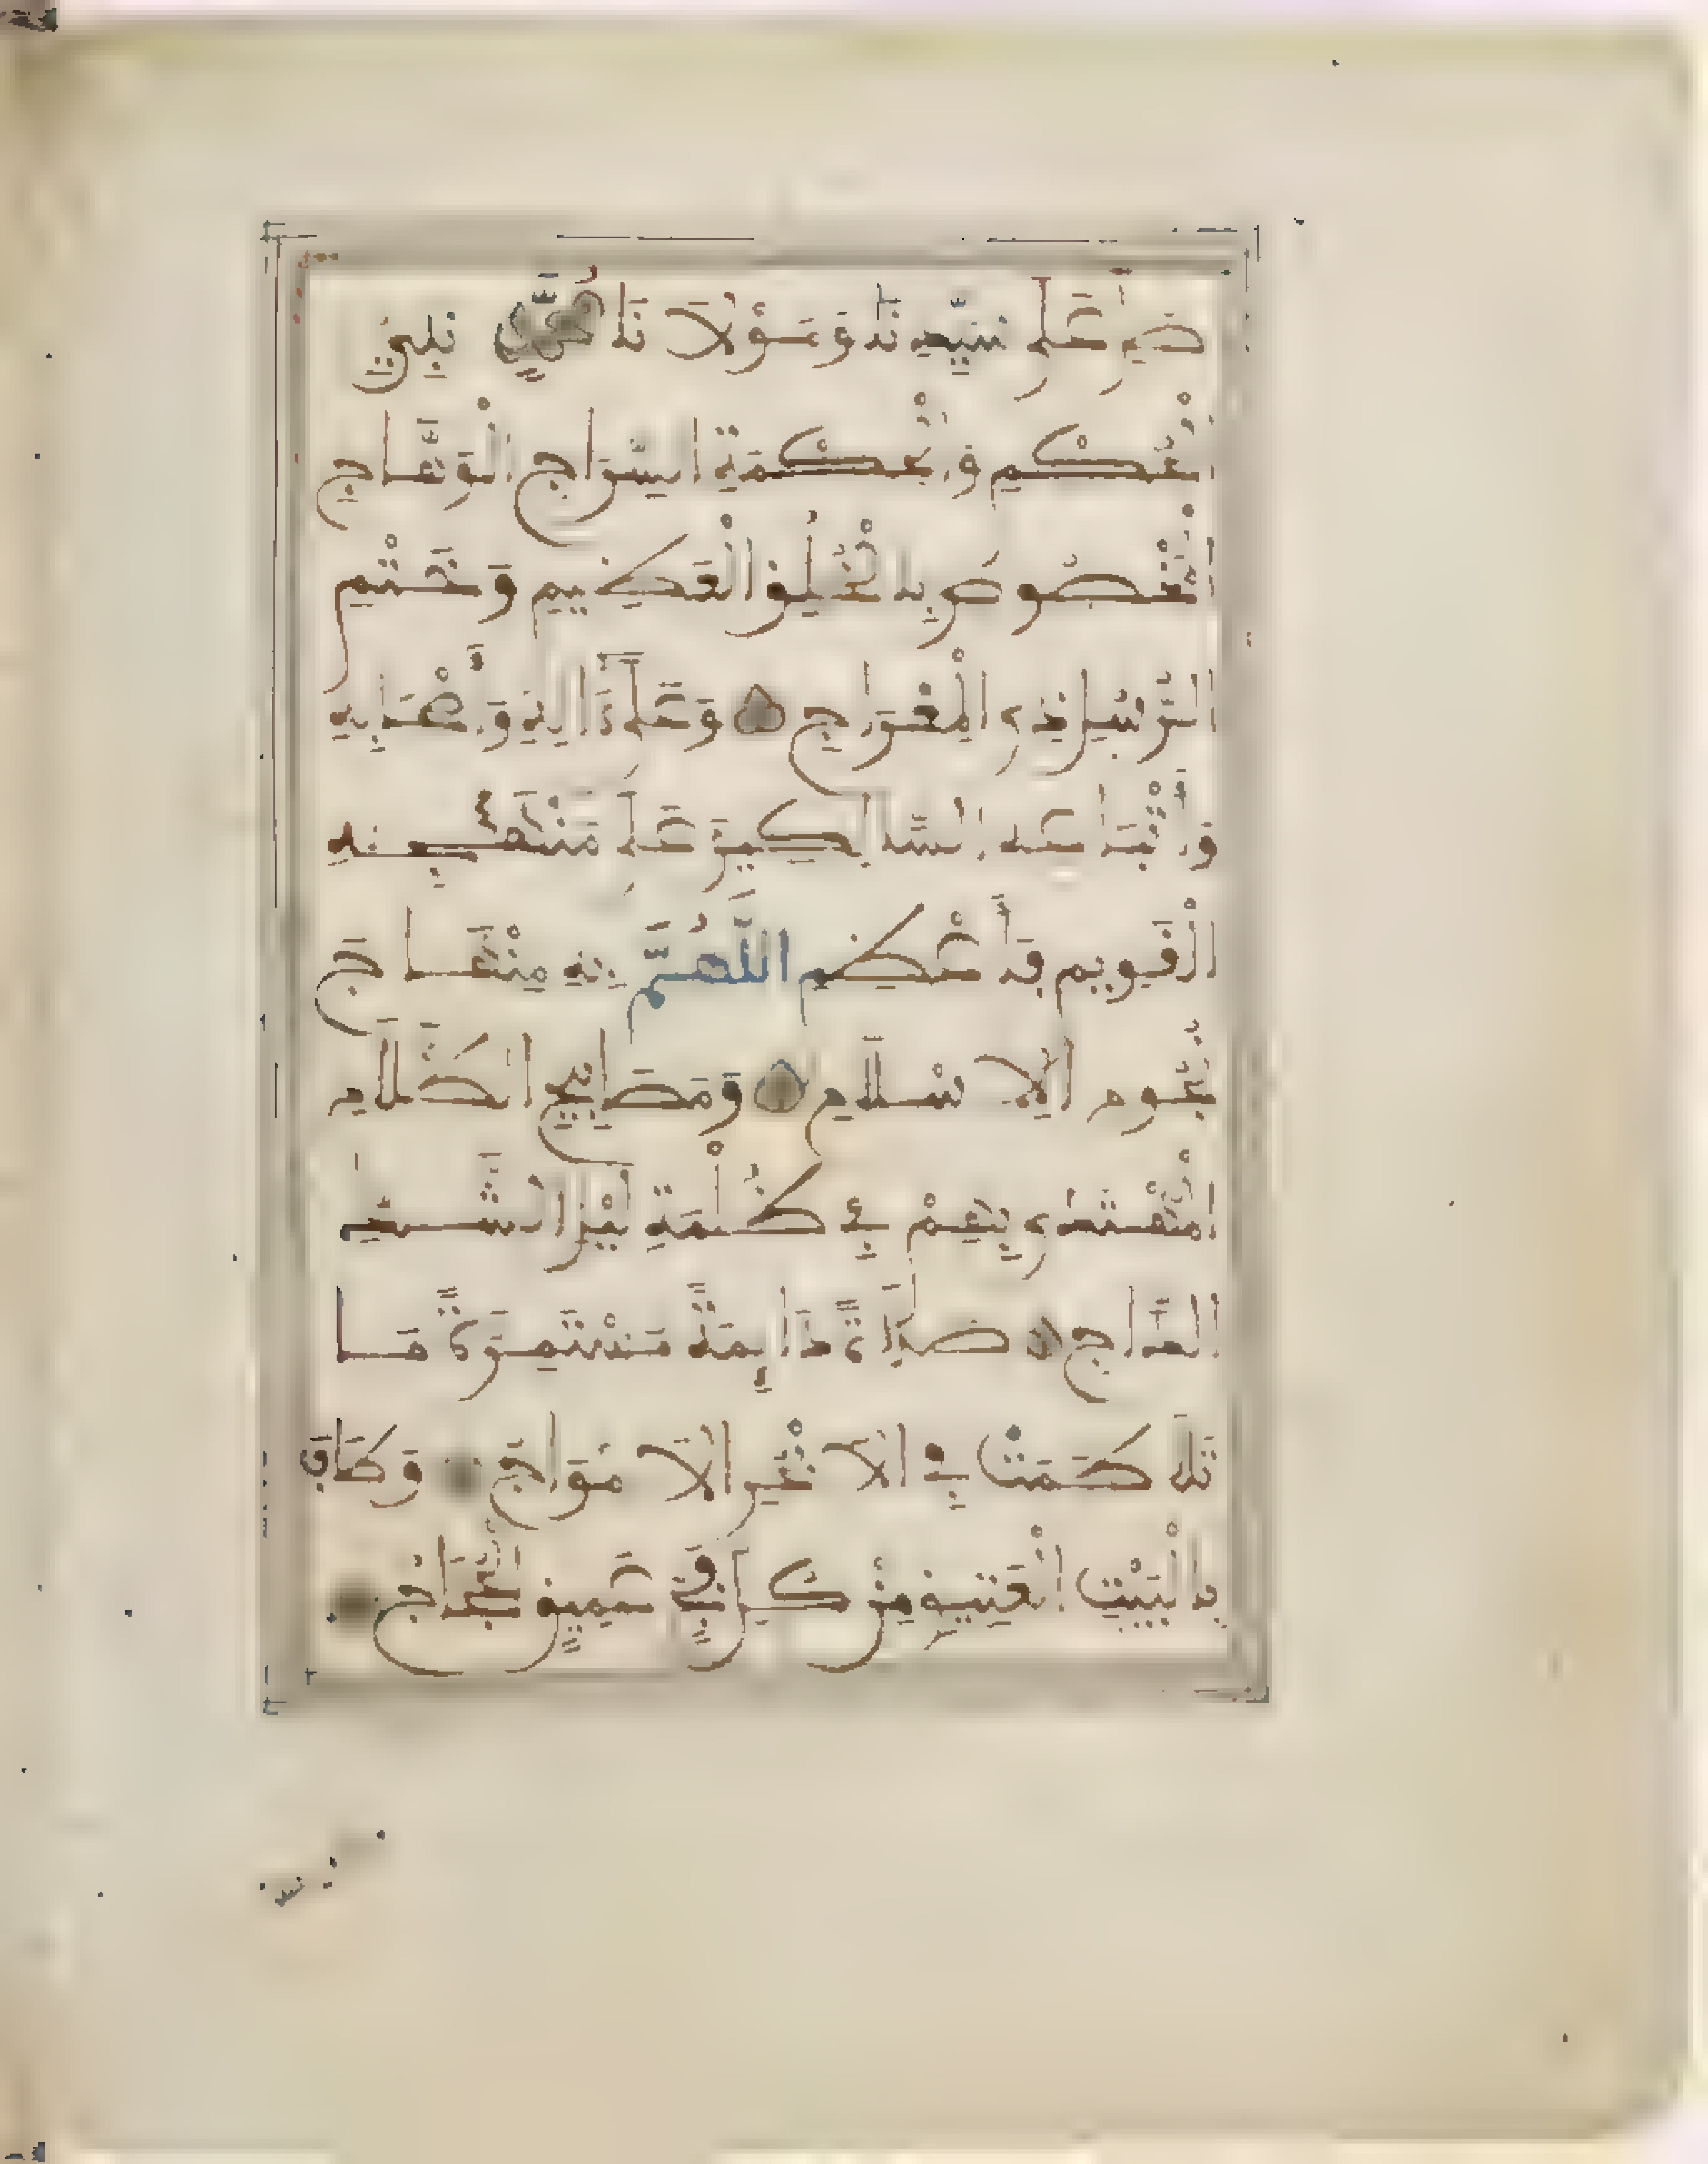 صَلِّ عَلَى سَيِّدِنَا وَمَوْلَانَا مُحَمَّدٍ نَبِيِّ
الْحُكْمِ وَالْحِكْمَةِ السِّرَاجِ الْوَهَّاجِ
الْمَخْصُوصِ بِالْخُلُقِ الْعَظِيمِ وَخَتْمِ
الرُّسُلِ ذِي الْمِعْرَاجِ وَعَلَى ءَالِهِ وَأَصْحَابِهِ
وَأَتْبَاعِهِ السَّالِكِينَ عَلَى مَنْهَجِهِ
الْقَوِيمِ فَأَعْظِمِ اللَّهُمَّ بِهِ مِنْهَاجَ
نُجُومِ الْإِسْلَامِ وَمَصَابِيحِ الظَّلَامِ
الْمُهْتَدَى بِهِمْ فِي ظُلْمَةِ لَيْلِ الشَّكِّ
الدَّاجِ صَلَاةً دَائِمَةً مُسْتَمِرَّةً مَا
تَلَاطَمَتْ فِي الْأَبْحُرِ الْأَمْوَاجُ وَطَافَ
بِالْبَيْتِ الْعَتِيقِ مِنْ كُلِّ فَجٍّ عَمِيقٍ الْحُجَّاجُ